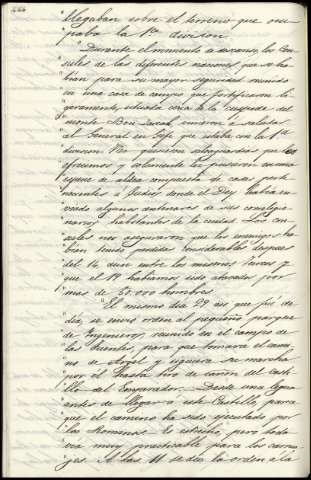 llegaban sobre el terreno que ocu-
paba la 1ª division.
"Durante el movimiento de avance, los Con-
sules de las diferentes naciones que se ha-
bian para su mayor seguridad reunido
en una casa de campo que fortificaron li-
geramente, situada cerca de la cuspide del
monte Bou-Zareah, vinieron á saludar
al General en Gefe que estaba con la 1ª
division. No quisieron salvaguardias que les
ofrecimos y solamente les pusieron en una
especie de aldea compuesta de casas perte-
necientes á Judios, donde el Dey habia en-
viado algunos centenares de sus correligio-
narios habitantes de la ciudad. Los con-
sules nos aseguraron que los enemigos ha-
bian tenido perdidas considerables despues
del 14, diez entre los mismos Turcos y
que el 19 habiamos sido atacados por
mas de 50.000 hombres.
"El mismo dia 29 asi que fué de
dia, se envió orden al pequeño parque
de Ingenieros, reunido en el campo de
las Fuentes, para que tomara el cami-
no de Argel y siguiera su marcha
por él hasta tiro de cañon del Casti-
llo del Emperador. Desde una legua
antes de llegar á este Castillo parece
que el camino ha sido ejecutado por
los Romanos. Es estrecho, pero toda-
via muy practicable para los carrua-
ges. A las 11 se dió la orden á la